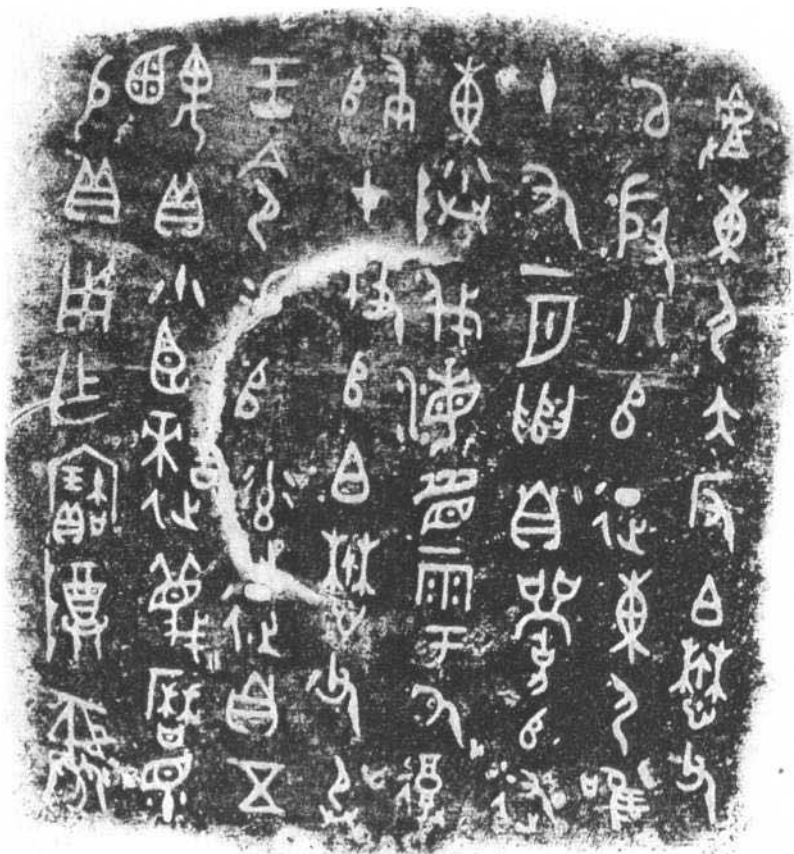 䖒東尸大反白懋父
㠯殷八𠂤征東尸唯
十又一月遣自𠂤述
東伐海眉雩厥復
歸才牧𠂤白懋父承
王令易𠂤達征自五
齵貝小臣𧬆蔑曆眔
易貝用乍寶尊彝